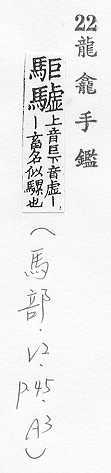 22龍龕手鑑
駏驉上音巨下音虛丨丨畜名似騾也
(馬部.L2.P.45.A3)